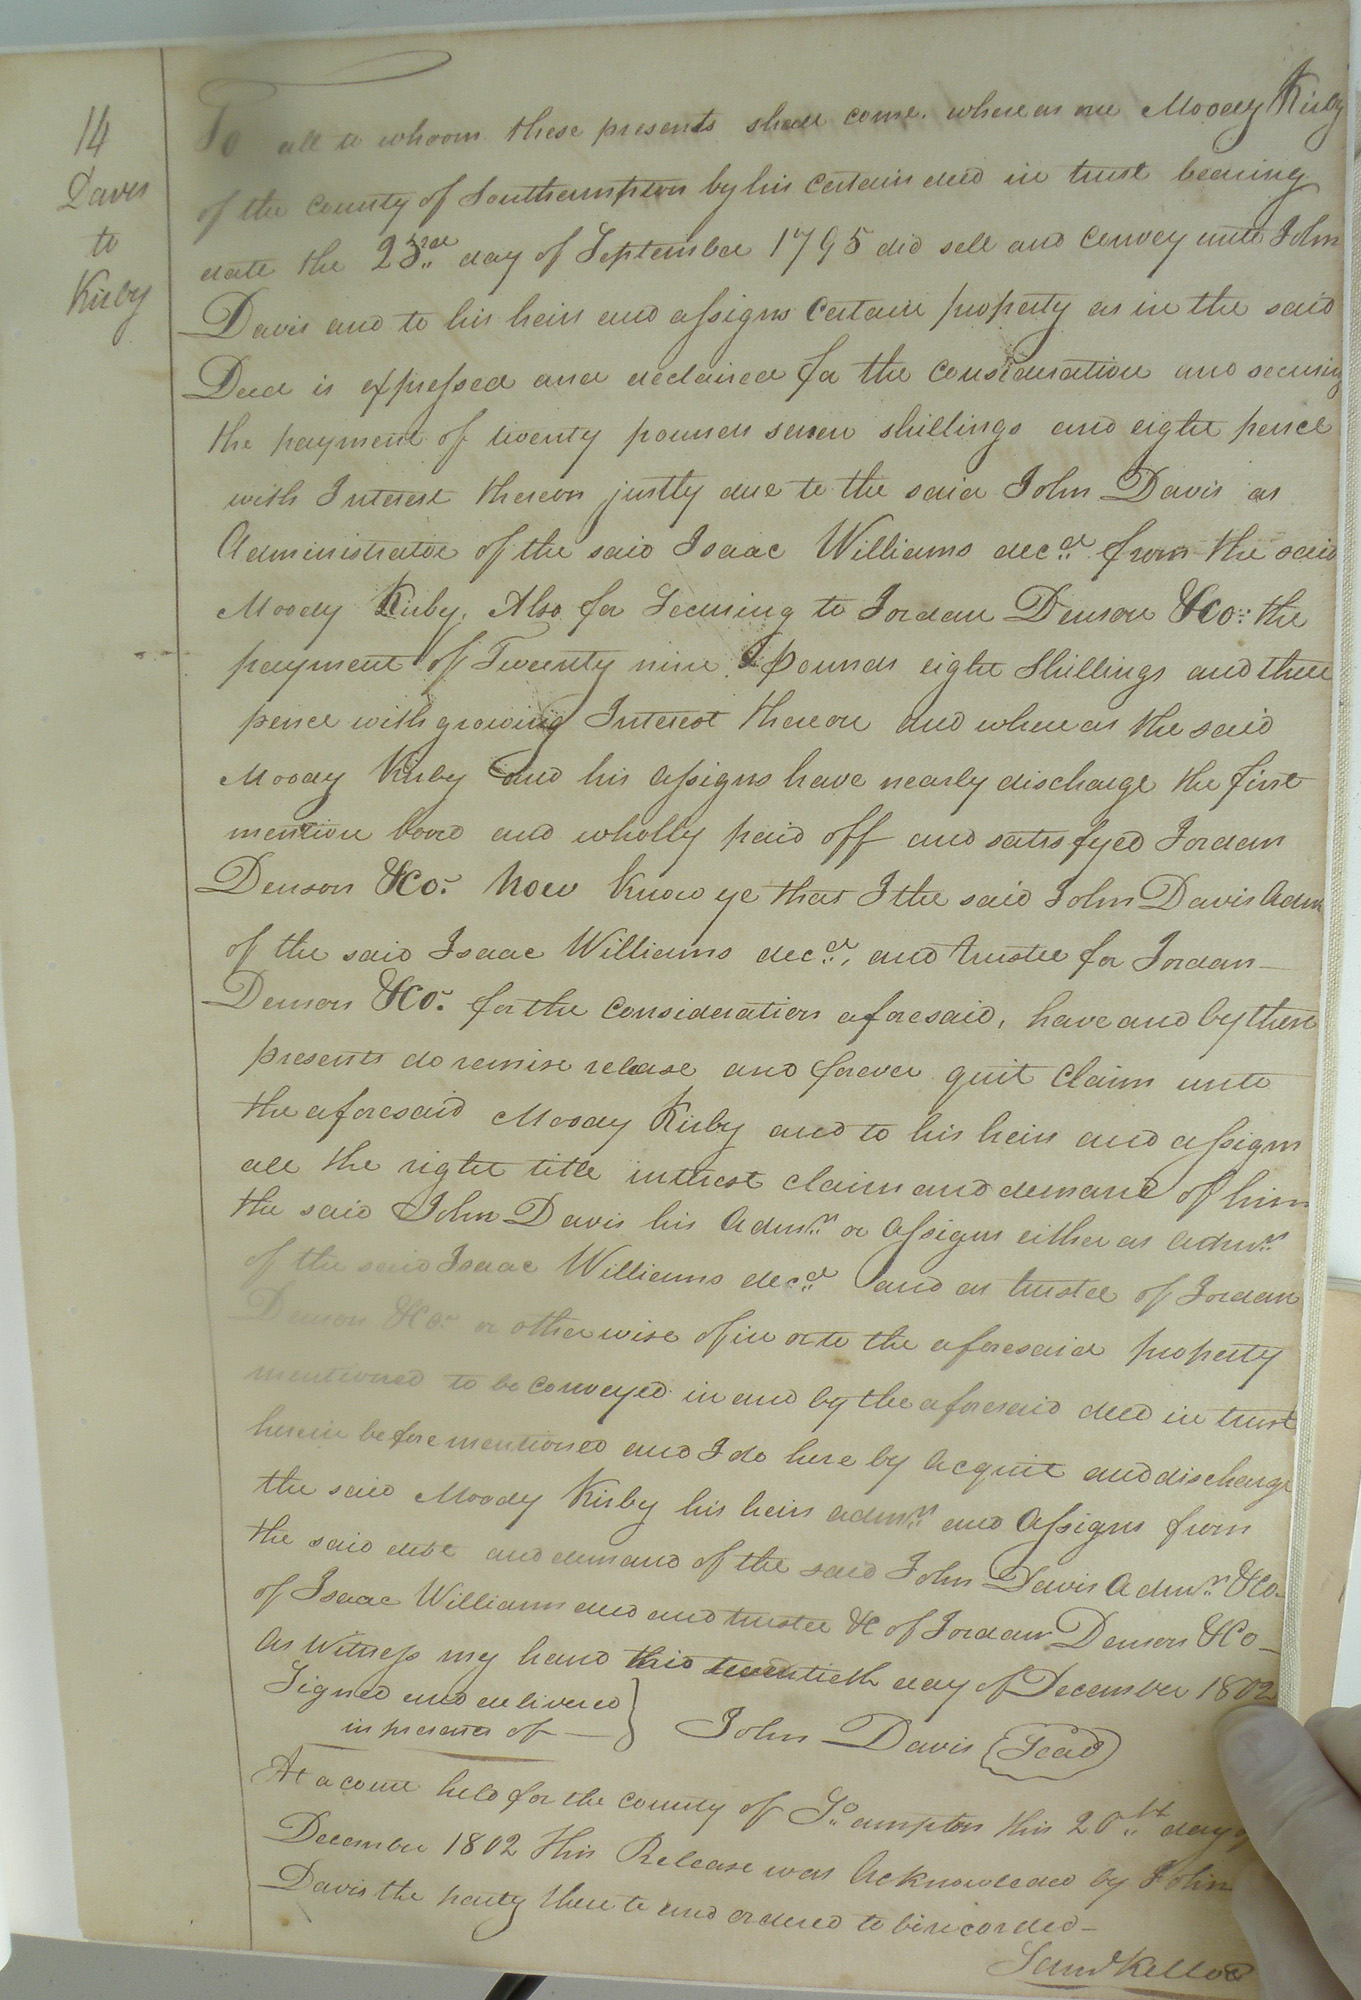 14
Davis
to
Kirby
To all to whoom these presents shall come. where as one Moody Kirby
of the county of Southampton by his certain deed in trust bearing
date the 23rd day of September 1795 did sell and convey unto John
Davis and to his heirs and assigns certain property as in the said
Deed is expressed and declaired for the consideration and securing
the payment of twenty pounds seven shillings and eight pence
with Interest thereon justly due to the said John Davis as
Administrator of the said Isaac Williams decd from the said
Moody Kirby. Also for Securing to Jordan Denson &Co: the
payment of Twenty nine pounds eight Shillings and three
pence with growing Interest thereon and where as the said
Moody Kirby and his assigns have nearly discharge the first
mention bond and wholly paid off and satisfyed Jordan
Denson &Co. Now Know ye that I the said John Davis Adm
of the said Isaac Williams decd, and trustee for Jordan
Denson &Co. for the consideration aforesaid, have and by these
presents do remise release and forever quit claim unto
the aforesaid Moody Kirby and to his heirs and assigns
all the right title interest claim and demand of him
the said John Davis his Admrs or Assigns either as admr
of the said Isaac Williams decd and as trustee of Jordan
Denson &Co. or otherwise of in or to the aforesaid property
mentioned to be conveyed in and by the aforesaid deed in trust
herein before mentioned and I do here by Acquit and discharge
the said Moody Kirby his heirs admrs and Assigns from
the said debt and demand of the said John Davis Admr &Co.
of Isaac Williams and trustee &c of Jordan Denson &Co
As Witness my hand this twentieth day of December 1802
Signed and delivered
in presence of
John Davis (Seal)
At a court held for the county of So.ampton this 20th day of
December 1802 This Release was Acknowledged by John
Davis the party there to and ordered to be recorded
Saml Kello